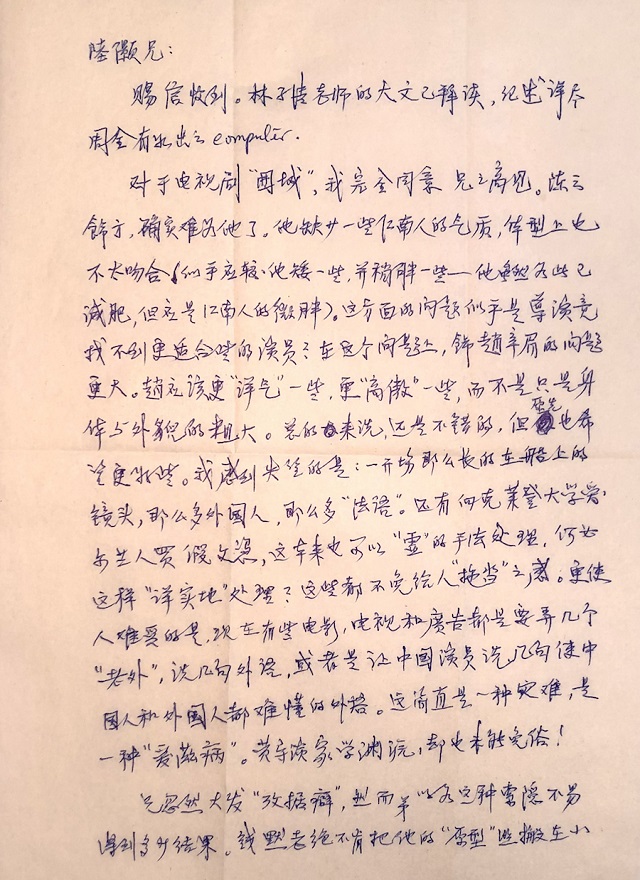 陸灝兄：
赐信收到。林子清老师的大文已拜读，纪述详尽
周全有如出之 computer.
对于电视剧“围城”，我完全同意兄之高见。陈之
饰方，确实难为他了。他缺少一些江南人的气质，体型上也
不太吻合（似乎应较他矮一些，并稍胖一些——他虽然为此已
减肥，但应是江南人的微胖）。这方面的问题似乎是导演竟
找不到更适合些的演员？在这个问题上，饰趙辛眉的问题
更大。趙应该更“洋气”一些，更“高傲”一些，而不是只是身
体与外貌的粗大。总的来说，还是不错的，但原先也希
望更好些。我感到失望的是：一开场那么长的在船上的
镜头，那么多外国人，那么多“法语”。还有向克莱登大学爱
尔兰人买假文凭，这本来也可以“虚”的手法处理，何必
这样“详实地”处理？这些都不免给人“拖沓”之感。更使
人难受的是，现在有些电影，电视和廣告都是要弄几个
“老外”，说几句外语，或者是让中国演员说几句使中
国人和外国人都难懂的外语。这简直是一种灾难，是
一种“爱滋病”。黄导演家学渊沅，却也未能免俗！
兄忽然大发“攷据癖”，然而弟以为这种索隐不易
得到多少结果。钱默老绝不肯把他的“原型”照搬在小